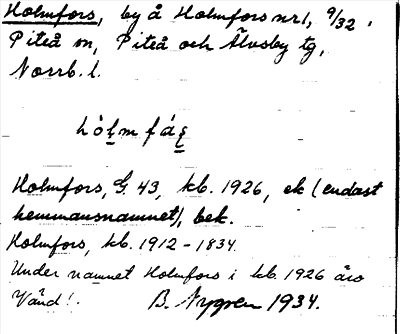 Holmfors, by å Holmfors nr 1, 9/32.
Piteå sn, Piteå och Älvsby tg,
Norrb. l.
hòḷm fáṣ
Holmfors, G. 43, kb. 1926, ek (endast
hemmansnamnet), bek.
Holmfors, kb. 1912-1834.
Under namnet Holmfors i kb. 1926 äro
Vänd! B. Nygren 1934.